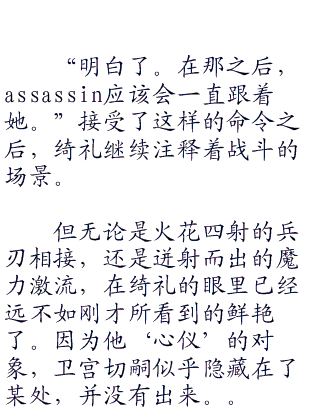 “明白了。在那之后，
assassin应该会一直跟着
她。”接受了这样的命令之
后，绮礼继续注释着战斗的
场景。
但无论是火花四射的兵
刃相接，还是迸射而出的魔
力激流，在绮礼的眼里已经
远不如刚才所看到的鲜艳
了。因为他‘心仪’的对
象，卫宫切嗣似乎隐藏在了
某处，并没有出来。。